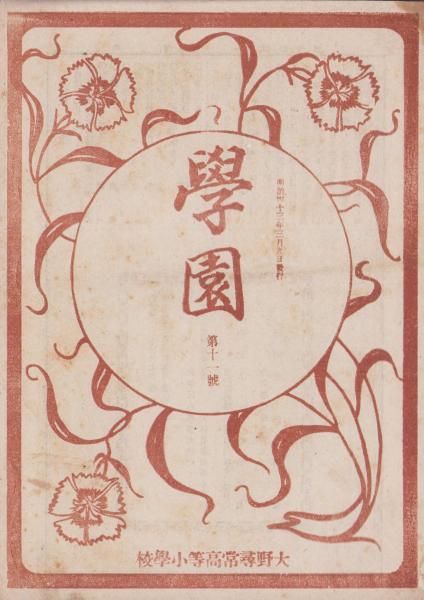 明治卅十三年三月五日發行
學園
第十一號
大野尋常高等小學校